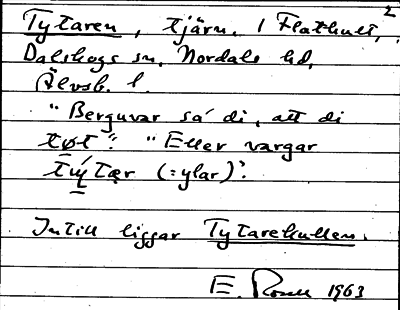 Tytaren, tjärn. 1 Flathult, 2
Dalskogs sn, Nordals hd,
Älvsb. l.
"Berguvar sá di, att di
tøt". "Eller vargar
týtær (:ylar)".
Intill liggar Tytarekullen.
E. Rosell 1963